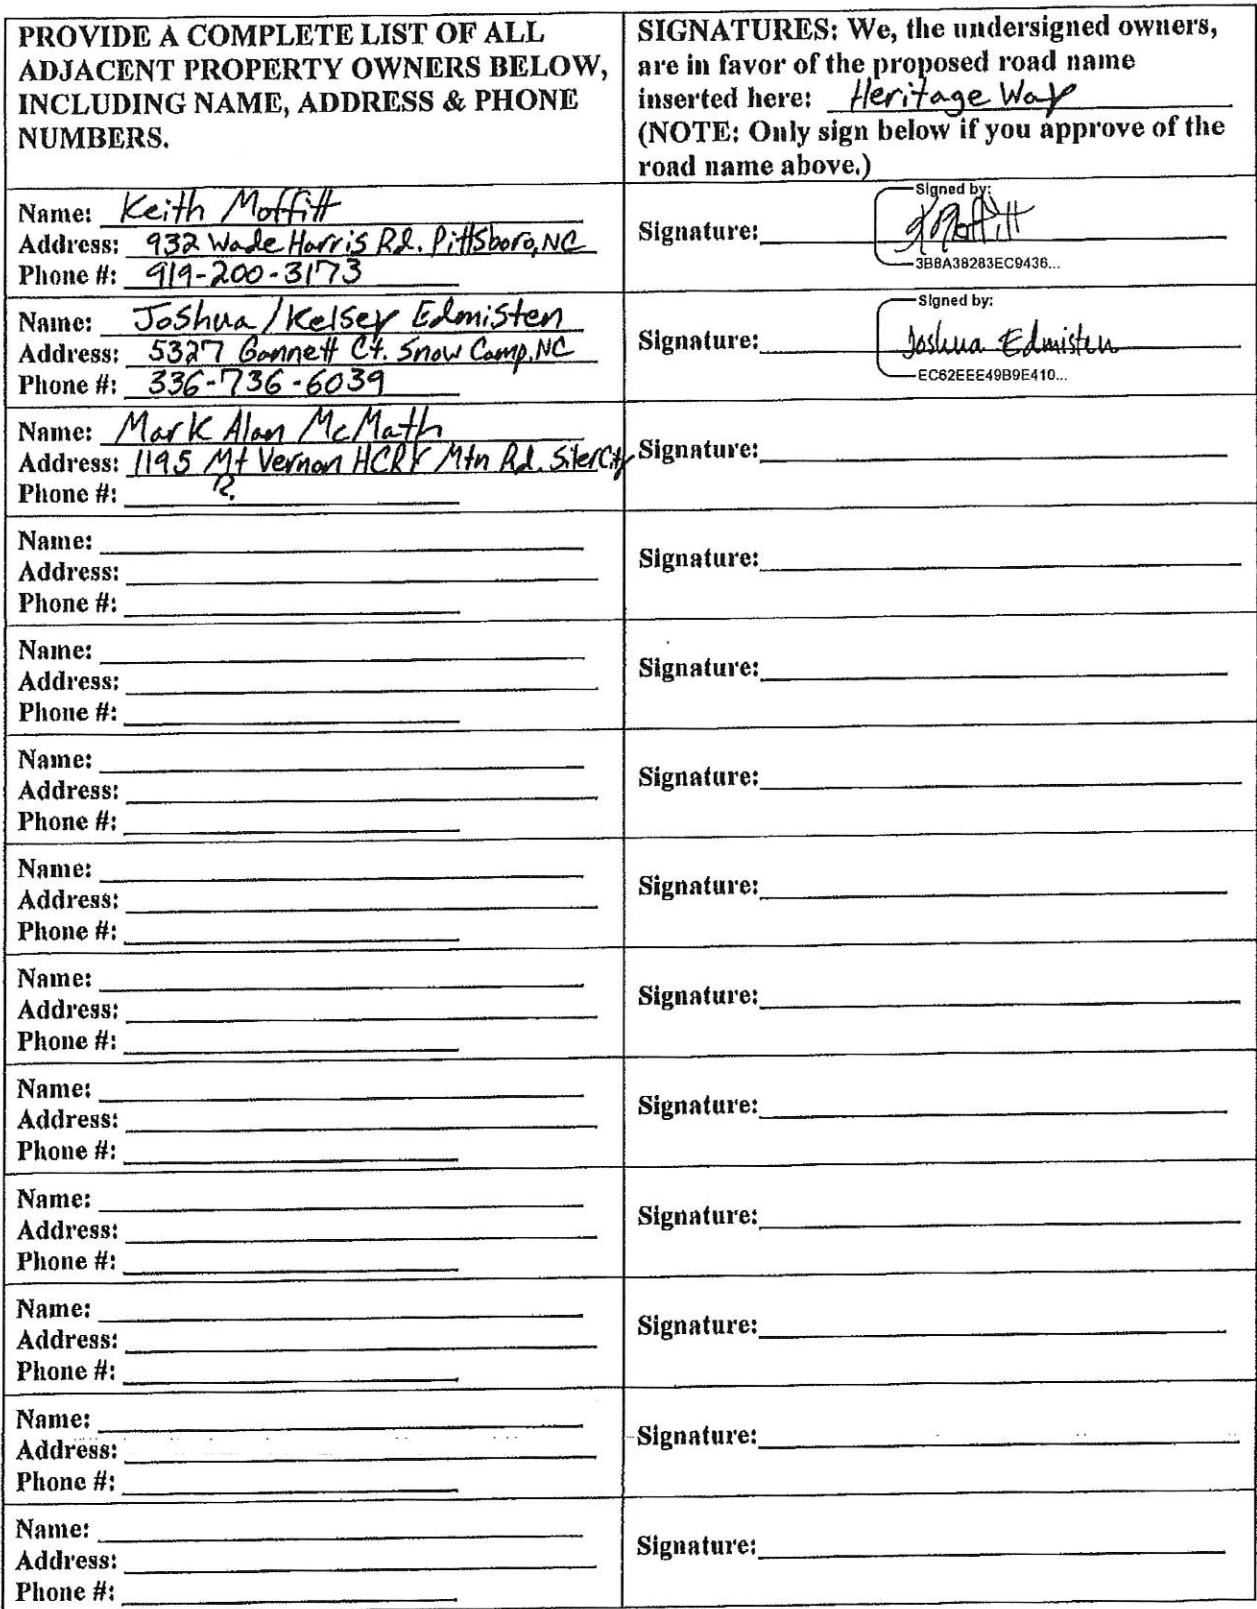 PROVIDE A COMPLETE LIST OF ALL
ADJACENT PROPERTY OWNERS BELOW,
INCLUDING NAME, ADDRESS & PHONE
NUMBERS.
SIGNATURES: We, the undersigned owners,
are in favor of the proposed road name
inserted here: Heritage Way
(NOTE: Only sign below if you approve of the
road name above.)
Name: Keith Moffitt
Address: 932 Wade Harris Rd. Pittsboro, NC
Phone #: 919-200-3173
Signed by:
Signature: K Moffitt
3B8A38283EC9436...
Name: Joshua / Kelsey Edmisten
Address: 5327 Gannett Ct. Snow Camp, NC
Phone #: 336-736-6039
Signed by:
Signature: Joshua Edmisten
EC62EEE49B9E410...
Name: Mark Alan McMath
Address: 1195 Mt Vernon Mtn Rd. Siler City
Phone #:
Signature:
Name:
Address:
Phone #:
Signature:
Name:
Address:
Phone #:
Signature:
Name:
Address:
Phone #:
Signature:
Name:
Address:
Phone #:
Signature:
Name:
Address:
Phone #:
Signature:
Name:
Address:
Phone #:
Signature:
Name:
Address:
Phone #:
Signature:
Name:
Address:
Phone #:
Signature:
Name:
Address:
Phone #:
Signature:
Name:
Address:
Phone #:
Signature: